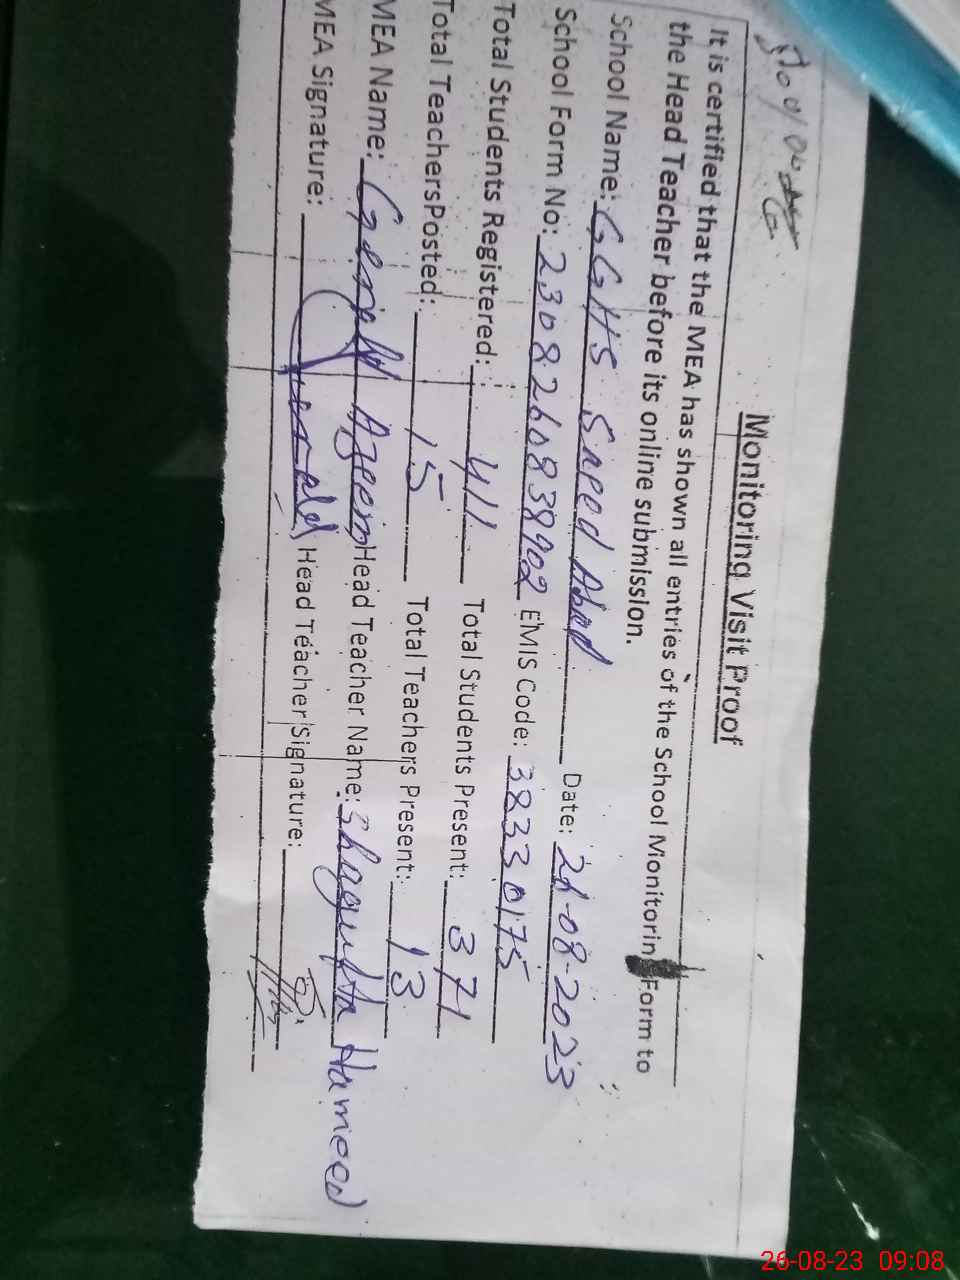 Monitoring Visit Proof
It is certified that the MEA has shown all entries of the School Monitorin Form to
the Head Teacher before its online submission.
School Name: GGHS Saeed Abad Date: 26-08-2023
School Form No: 2308260838902 EMIS Code: 38330175
Total Students Registered: 411 Total Students Present: 371
Total TeachersPosted: 15 Total Teachers Present: 13
MEA Name: Gerald Azeem Head Teacher Name: Shagufta Hameed
MEA Signature: Gerald Head Teacher Signature:
26-08-23 09:08